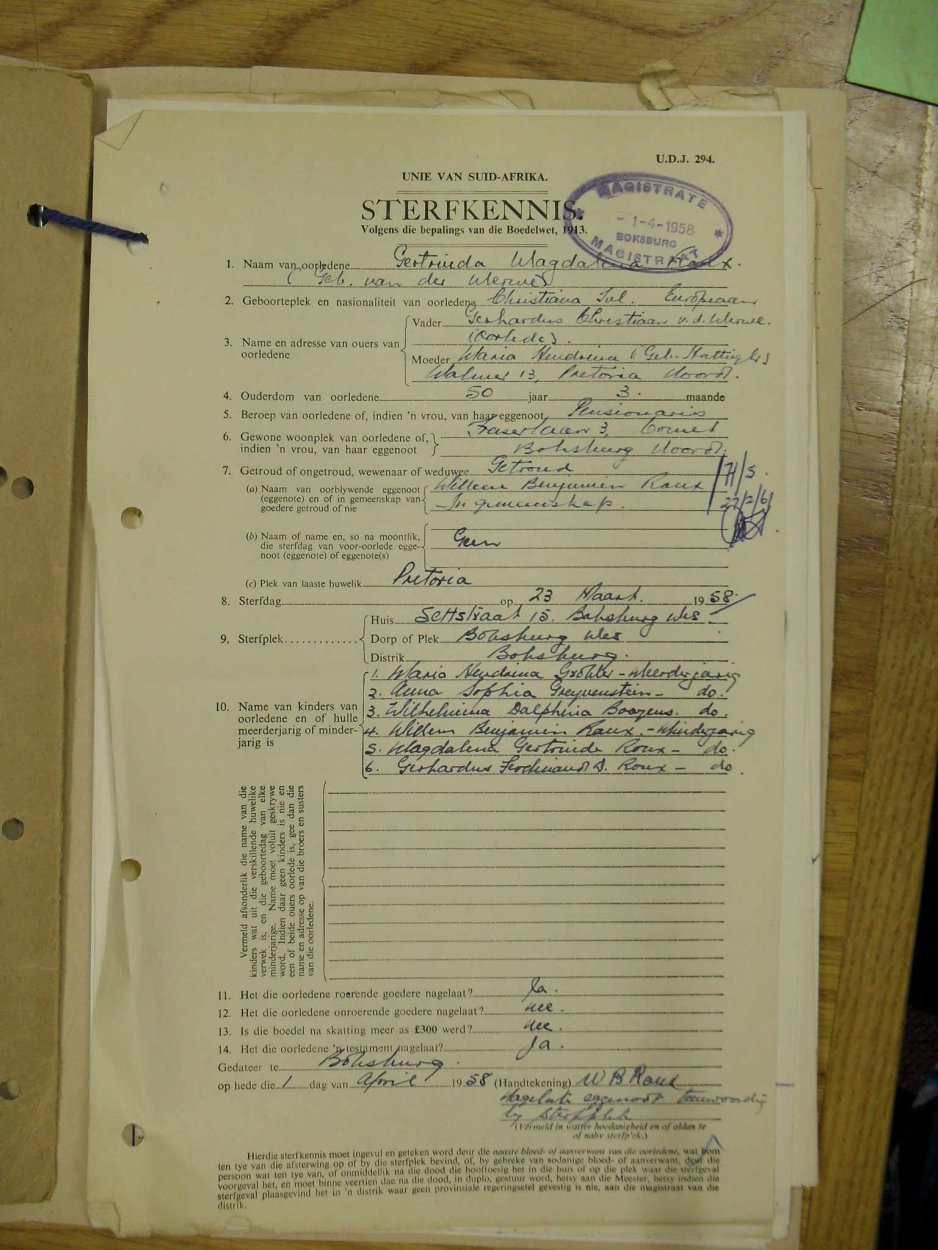 U.D.J. 294.
UNIE VAN SUID-AFRIKA.
STERFKENNIS.
Volgens die bepalings van die Boedelwet, 1913.
MAGISTRATE
- 1-4-1958
BOKSBURG
MAGISTRAAT
1. Naam van oorledene Gertruida Magdalena Roux.
(Geb. van der Merwe)
2. Geboorteplek en nasionaliteit van oorledene Christiana Tvl. Europeaan
3. Name en adresse van ouers van oorledene
Vader Gerhardus Christiaan v.d. Merwe.
(Oorlede).
Moeder Maria Hendrina (Geb. Hattingh)
13, Pretoria Noord.
4. Ouderdom van oorledene 50 jaar 3. maande
5. Beroep van oorledene of, indien 'n vrou, van haar eggenoot Pensionaris
6. Gewone woonplek van oorledene of, indien 'n vrou, van haar eggenoot
Fraserlaan 3, Comet
Boksburg Noord.
7. Getroud of ongetroud, wewenaar of weduwee Getroud
(a) Naam van oorblywende eggenoot (eggenote) en of in gemeenskap van goedere getroud of nie
Willem Benjamin Roux
In gemeenskap.
(b) Naam of name en, so na moontlik, die sterfdag van voor-oorlede eggenoot (eggenote) of eggenote(s)
Geen
(c) Plek van laaste huwelik Pretoria
8. Sterfdag op 23 Maart. 1958.
9. Sterfplek
Huis 15. Boksburg Wes.
Dorp of Plek Boksburg Wes
Distrik Boksburg.
10. Name van kinders van oorledene en of hulle meerderjarig of minderjarig is
1. Maria Hendrina - Meerderjarig
2. Anna Sophia Greyvenstein - do.
3. Wilhelmina Dalphina Booyens. do.
4. Willem Benjamin Roux. - Minderjarig
5. Magdalena Gertruida Roux - do.
6. Gerhardus Ferdinand S. Roux - do
Vermeld afsonderlik die name van die
kinders wat uit die verskillende huwelike
verwek is, en die geboortedag van elke
minderjarige. Name moet voluit geskrywe
word. Indien daar geen kinders is nie en
een of beide ouers oorlede is, gee dan die
name en adresse op van die broers en susters
van die oorledene.
11. Het die oorledene roerende goedere nagelaat? Ja.
12. Het die oorledene onroerende goedere nagelaat? Nee.
13. Is die boedel na skatting meer as £300 werd? Nee.
14. Het die oorledene 'n testament nagelaat? Ja.
Gedateer te Boksburg.
op hede die 1 dag van April 1958 (Handtekening) W B Roux
Nagelate eggenoot teenwoordig
by sterfplek
(Vermeld in watter hoedanigheid en of aldan te
of naby sterfplek.)
Hierdie sterfkennis moet ingevul en geteken word deur die naaste bloed- of aanverwant van die oorledene, wat hom
ten tye van die afsterwing op of by die sterfplek bevind, of, by gebreke van sodanige bloed- of aanverwant, deur die
persoon wat ten tye van, of onmiddellik na die dood die hooftoesig het in die huis of op die plek waar die sterfgeval
voorgeval het, en moet binne veertien dae na die dood, in duplo, gestuur word, hetsy aan die Meester, hetsy indien die
sterfgeval plaasgevind het in 'n distrik waar geen provinsiale regeringsetel gevestig is nie, aan die magistraat van die
distrik.